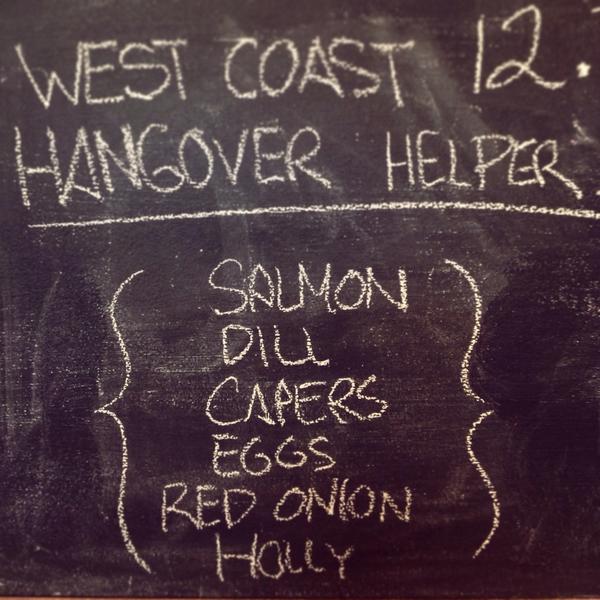 WEST COAST 12.
HANGOVER HELPER
SALMON
DILL
CAPERS
EGGS
RED ONION
HOLLY